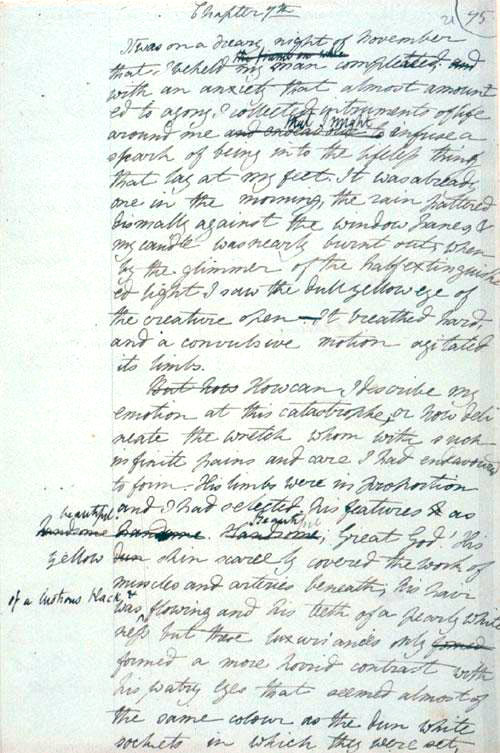 Chapter 7th
21 95
It was on a dreary night of November
the frame on whic
that I beheld my man completed and
with an anxiety that almost amount
ed to agony, I collected instruments of life
that I might
around me and endeavour to infuse a
spark of being into the lifeless thing
that lay at my feet. It was already
one in the morning, the rain pattered
dismally against the window panes, &
my candle was nearly burnt out, when
by the glimmer of the half extinguish
ed light I saw the dull yellow eye of
the creature open—It breathed hard,
and a convulsive motion agitated
its limbs.
But how How can I describe my
emotion at this catastrophe, or how deli
neate the wretch whom with such
infinite pains and care I had endeavoured
to form. His limbs were in proportion
and I had selected his features & as
beautiful Beautiful
handsome handsome. Handsome; Great God! His
yellow dun skin scarcely covered the work of
muscles and arteries beneath; his hair
of a lustrous black, &
was flowing and his teeth of a pearly white
ness but these luxuriances only formed
formed a more horrid contrast with
his watry eyes that seemed almost of
the same colour as the dun white
sockets in which they were set